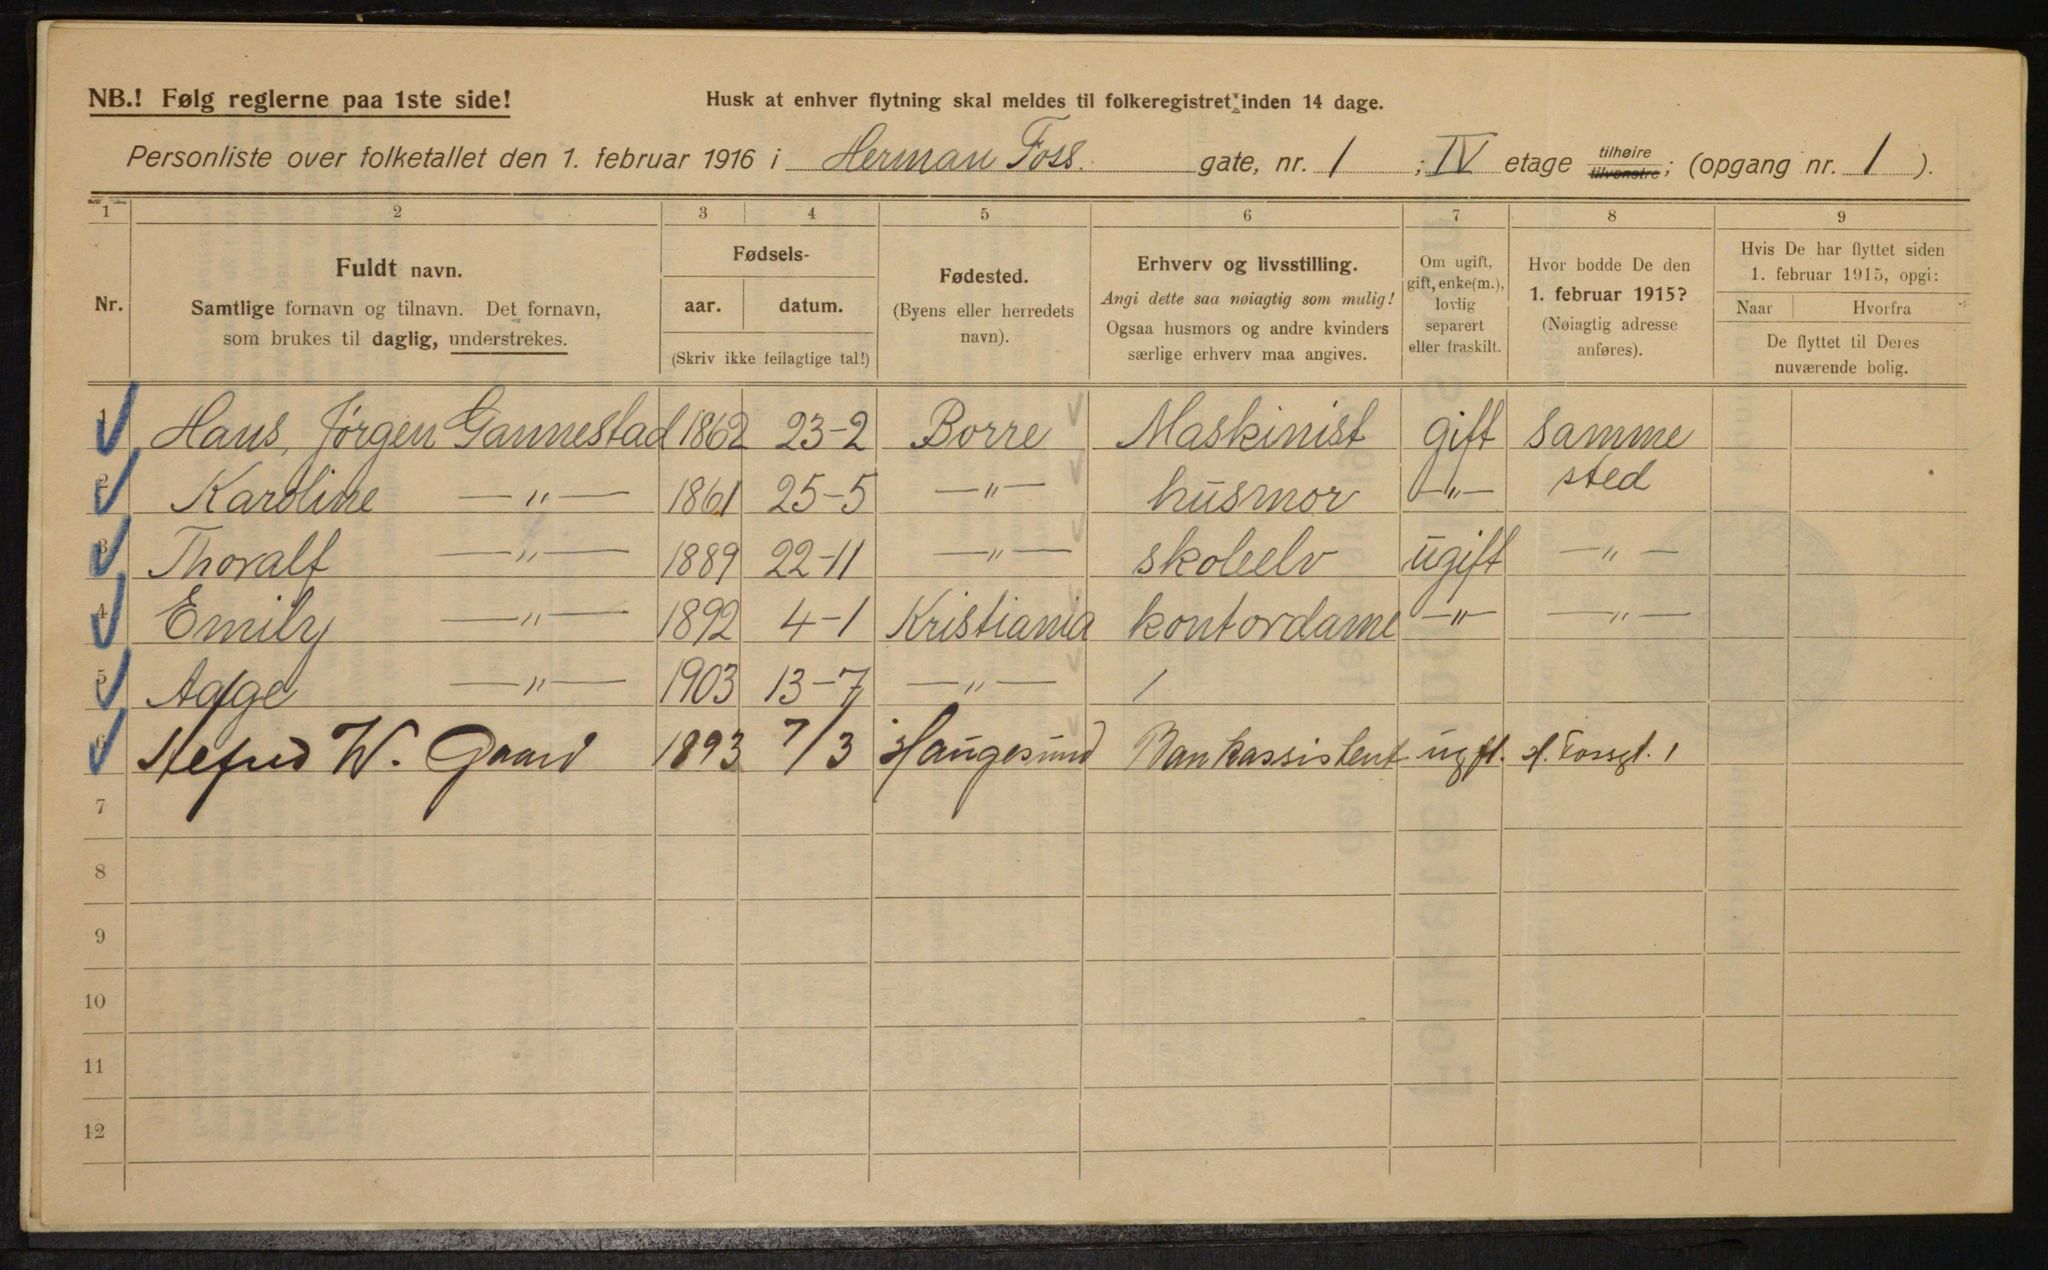 NB.! Følg reglerne paa 1ste side!
Husk at enhver flytning skal meldes til folkeregistret inden 14 dage.
Personliste over folketallet den 1. februar 1916 i Herman Foss. gate, nr. 1 ; IV etage tilhøire tilvenstre; (opgang nr. 1 ).
1 2 3 4 5 6 7 8 9
Nr.
Fuldt navn.
Samtlige fornavn og tilnavn. Det fornavn,
som brukes til daglig, understrekes.
Fødsels-
aar. datum.
(Skriv ikke feilagtige tal!)
Fødested.
(Byens eller herredets
navn).
Erhverv og livsstilling.
Angi dette saa nøiagtig som mulig!
Ogsaa husmors og andre kvinders
særlige erhverv maa angives.
Om ugift,
gift, enke(m.),
lovlig
separert
eller fraskilt.
Hvor bodde De den
1. februar 1915?
(Nøiagtig adresse
anføres).
Hvis De har flyttet siden
1. februar 1915, opgi:
Naar Hvorfra
De flyttet til Deres
nuværende bolig.
1 Hans, Jørgen Gannestad 1862 23-2 Borre Maskinist gift samme
sted
2 Karoline —"— 1861 25-5 —"— husmor —"—
3 Thoralf —"— 1889 22-11 —"— skoleelv ugift —"—
4 Emily —"— 1892 4-1 Kristiania kontordame —"— —"—
5 Aage —"— 1903 13-7 —"— /
6 W. Gaard 1893 7/3 Haugesund Bankassistent ugft. H. Fossgt. 1
7
8
9
10
11
12